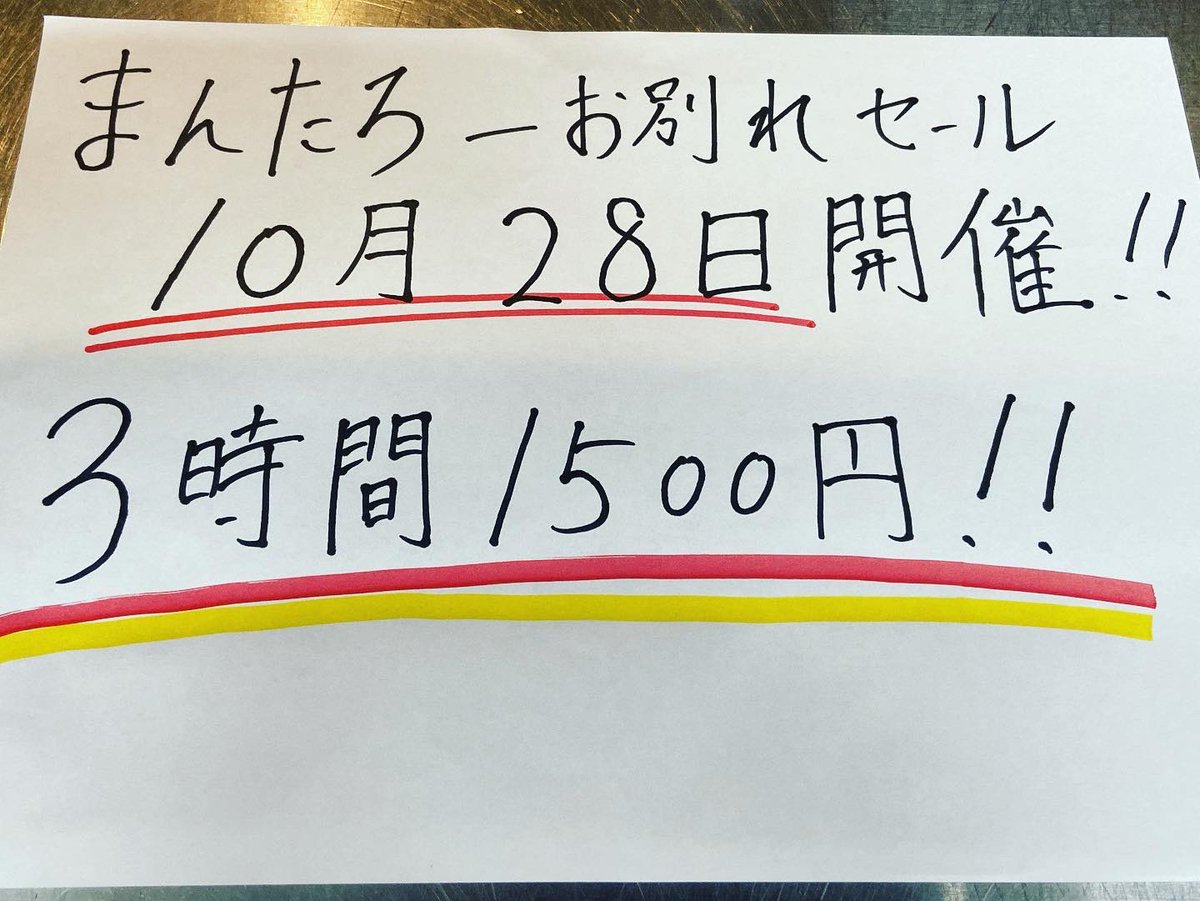 まんたろーお別れセール
10月28日開催!!
3時間1500円!!